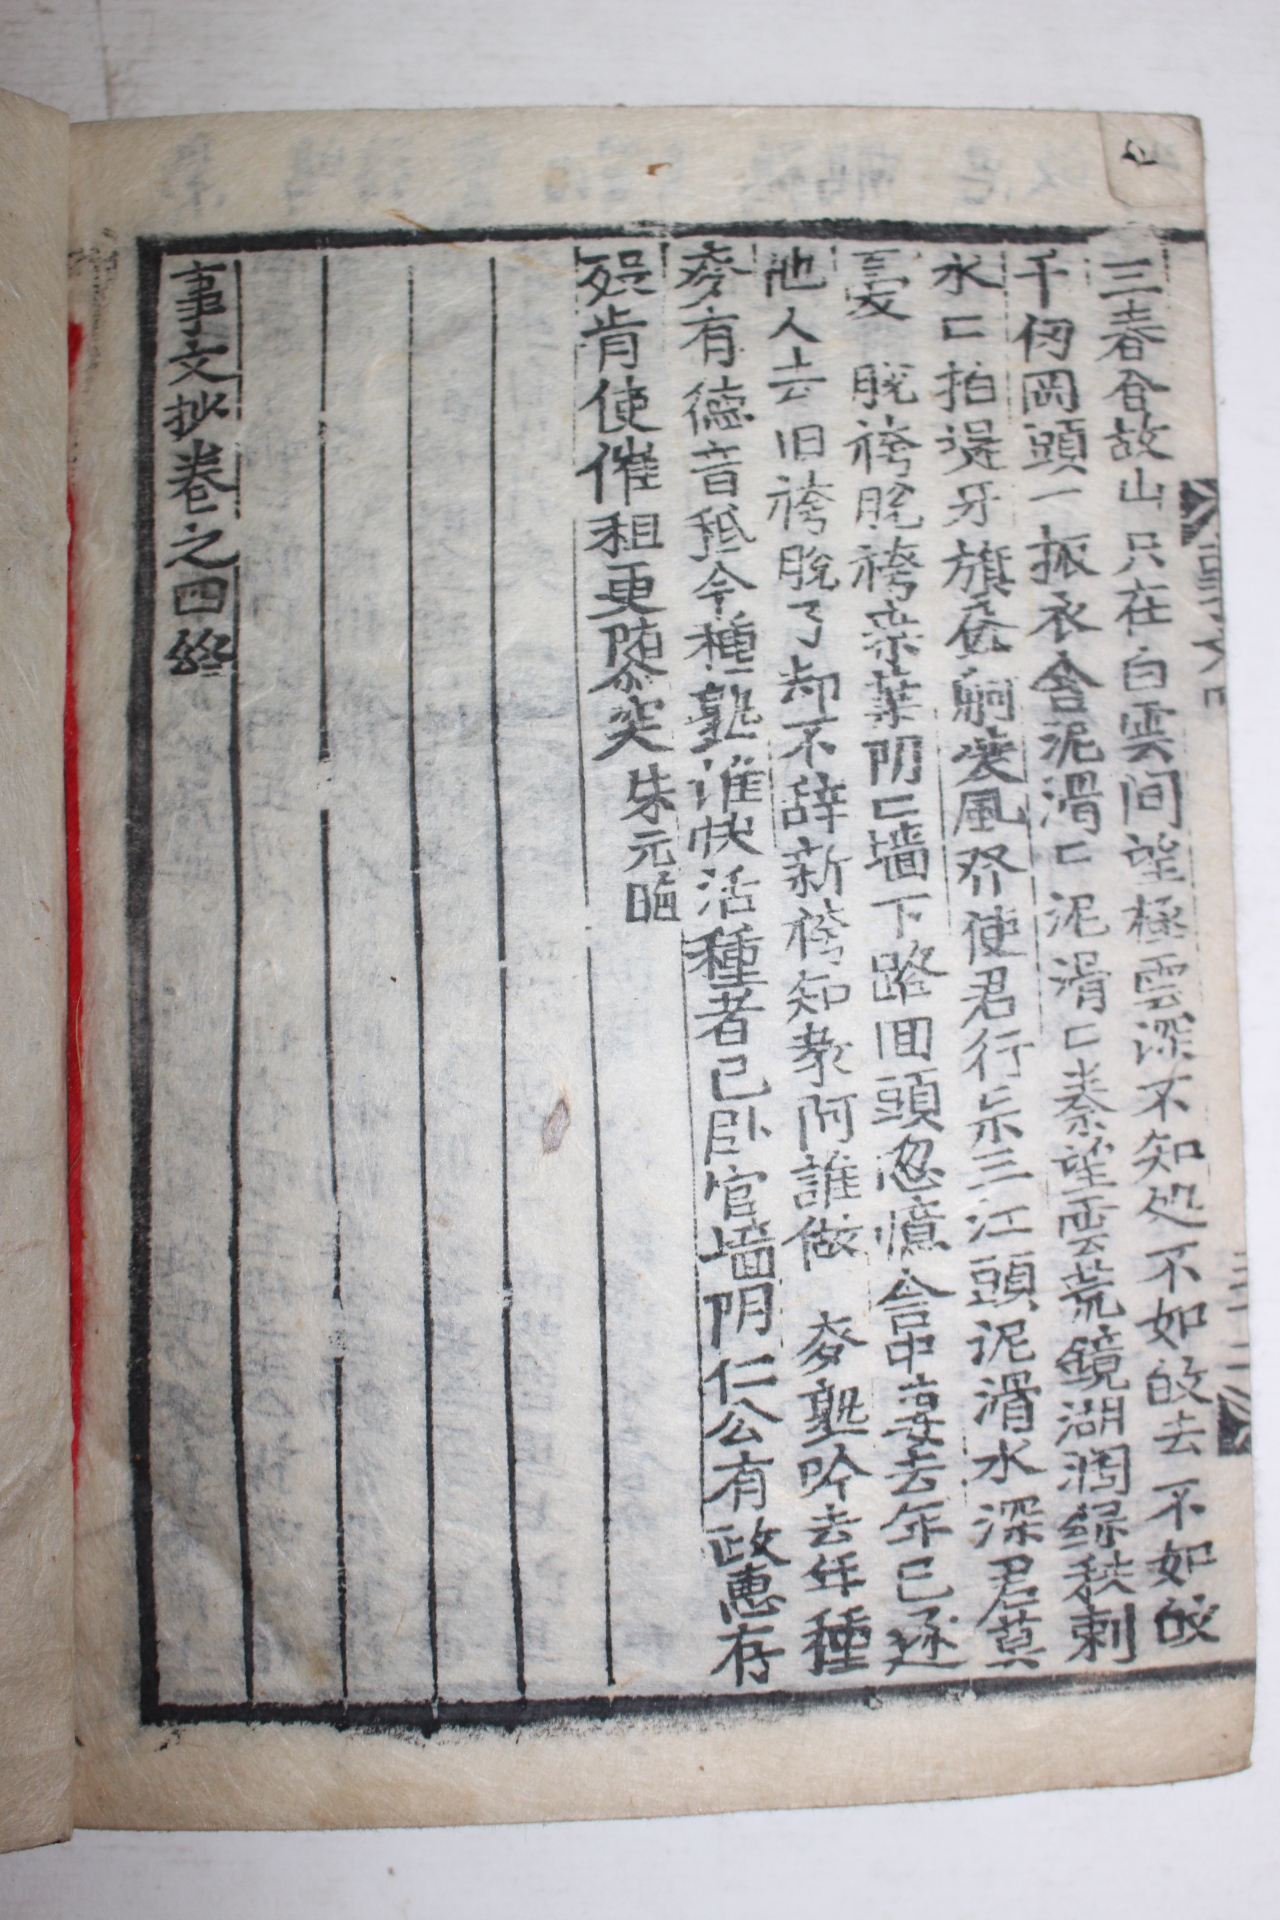 三春谷故山只在白雲间望極雲深不知処不如皈去不如皈
千仭岡頭一振衣舍泥滑〻泥滑〻秦望雲荒鏡湖濶緑秧刺
水〻拍堤牙旗夝舸凌風発使君行示三江頭泥滑水深君莫
憂 脫袴脫袴桒葉阴〻墙下路回頭忽憶舍中妻去年已逐
他人去旧袴脫了却不辞新袴知教阿誰做 麥熟吟去年種
麥有德音秪今種熟谁快活種者已卧官墙阴仁公有政恵存
殁肯使催租更隳突 朱元晦
事文抄卷之四終